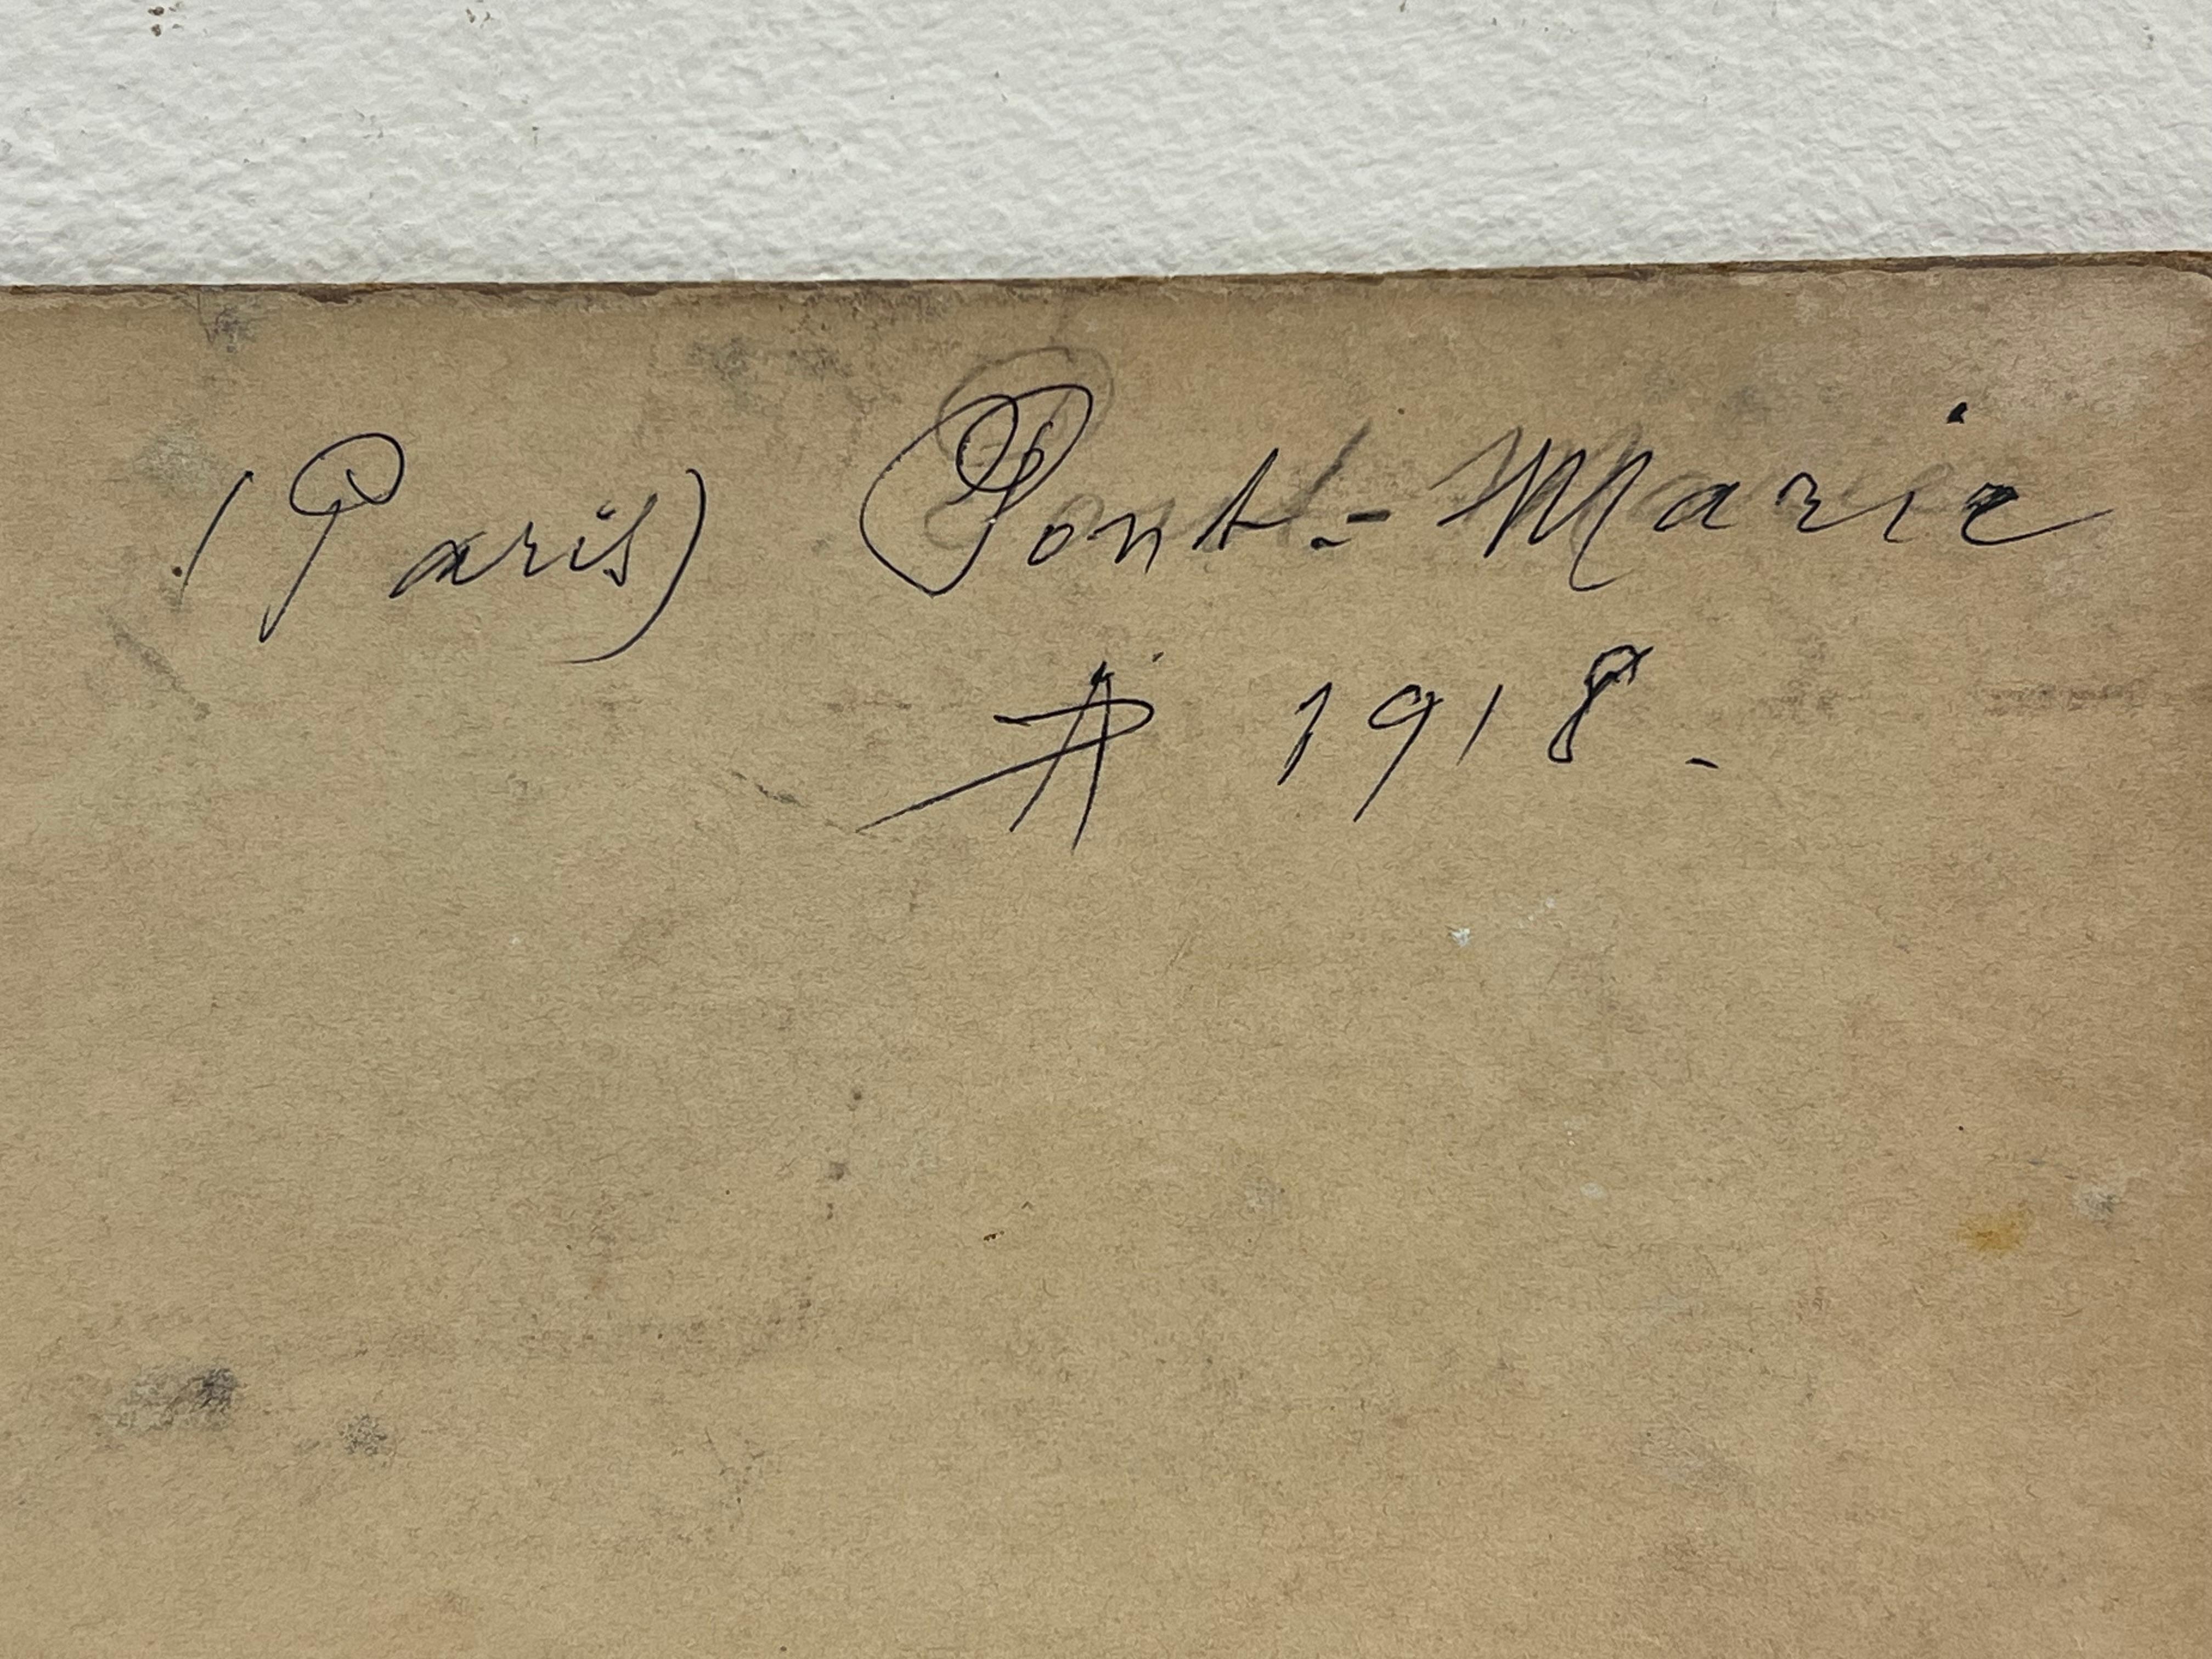 (Paris) Pont-Marie
A 1918.